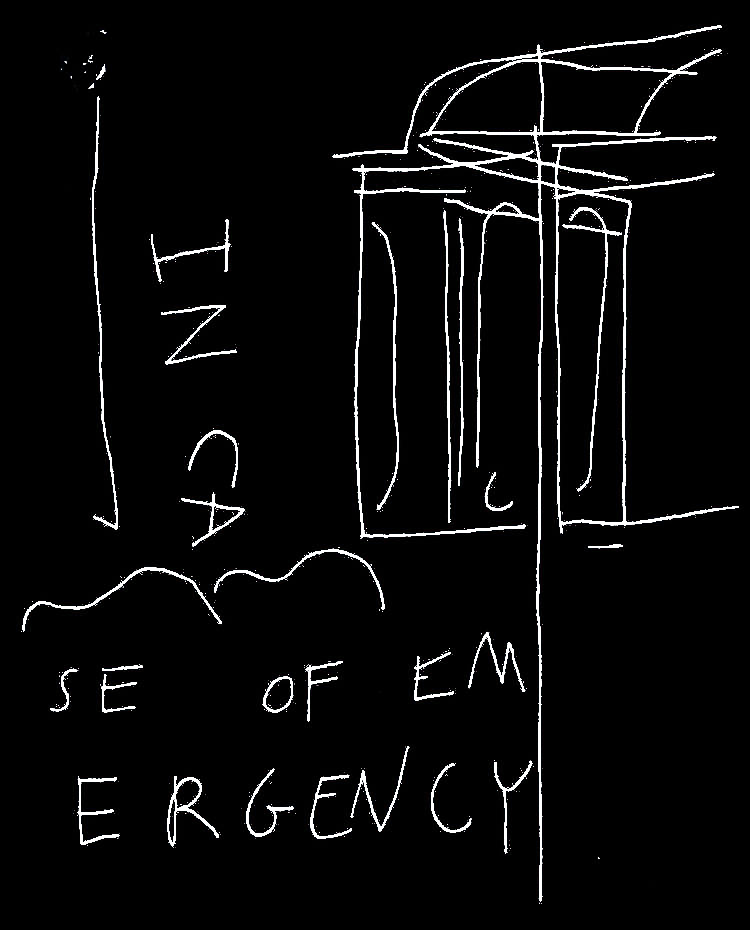 IN CA
SE OF EM
ERGENCY